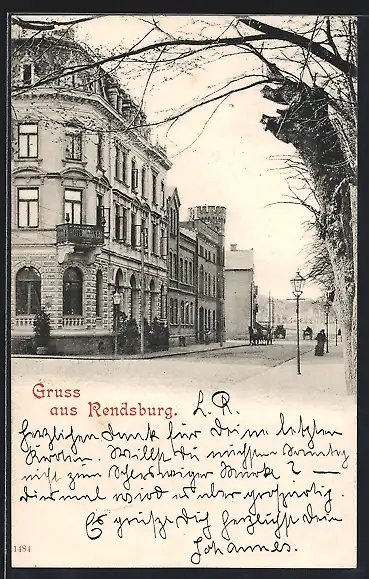 Gruss
aus Rendsburg.
L. R.
herzlichen Dank für Deine letzten
Karten. Willst Du nächsten Sonntag
nicht zum Schleswiger Markt? —
diesmal wird es aber großartig.
Es grüßt Dich herzlichst Dein
Johannes.
1484